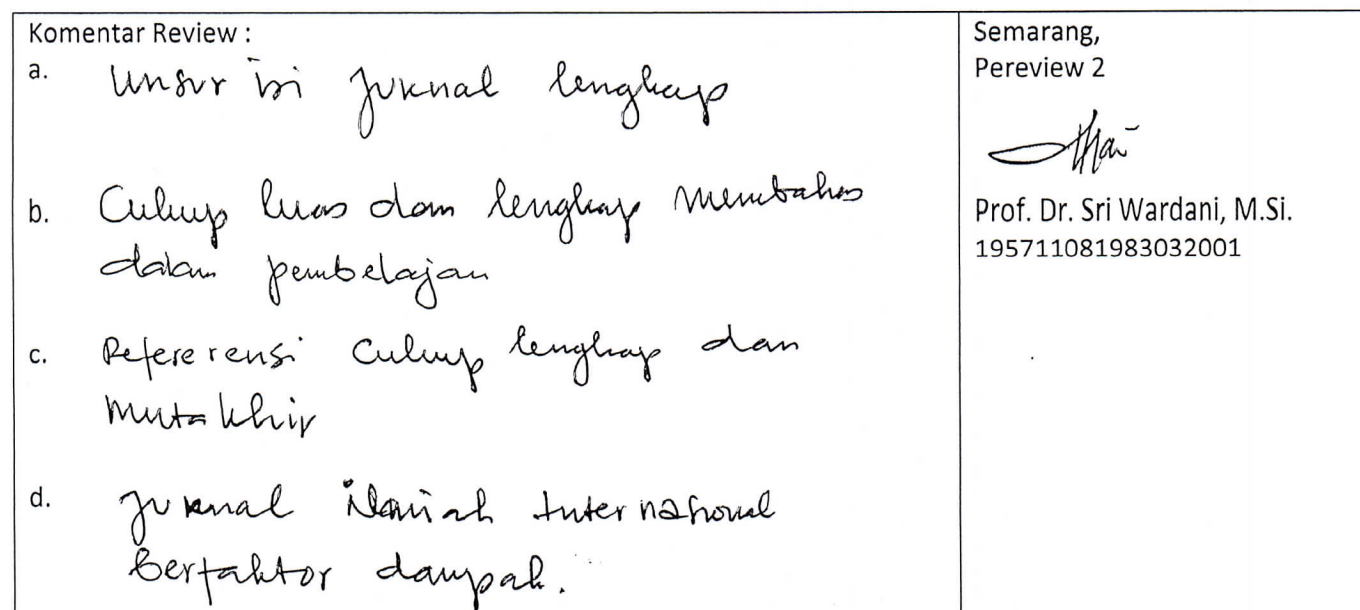 Komentar Review :
a. Unsur isi jurnal lengkap
b. Cukup luas dan lengkap membahas
dalam pembelajan
c. Refererensi cukup lengkap dan
mutakhir
d. Jurnal ilmiah Internasional
Berfaktor dampak.
Semarang,
Pereview 2
Prof. Dr. Sri Wardani, M.Si.
195711081983032001